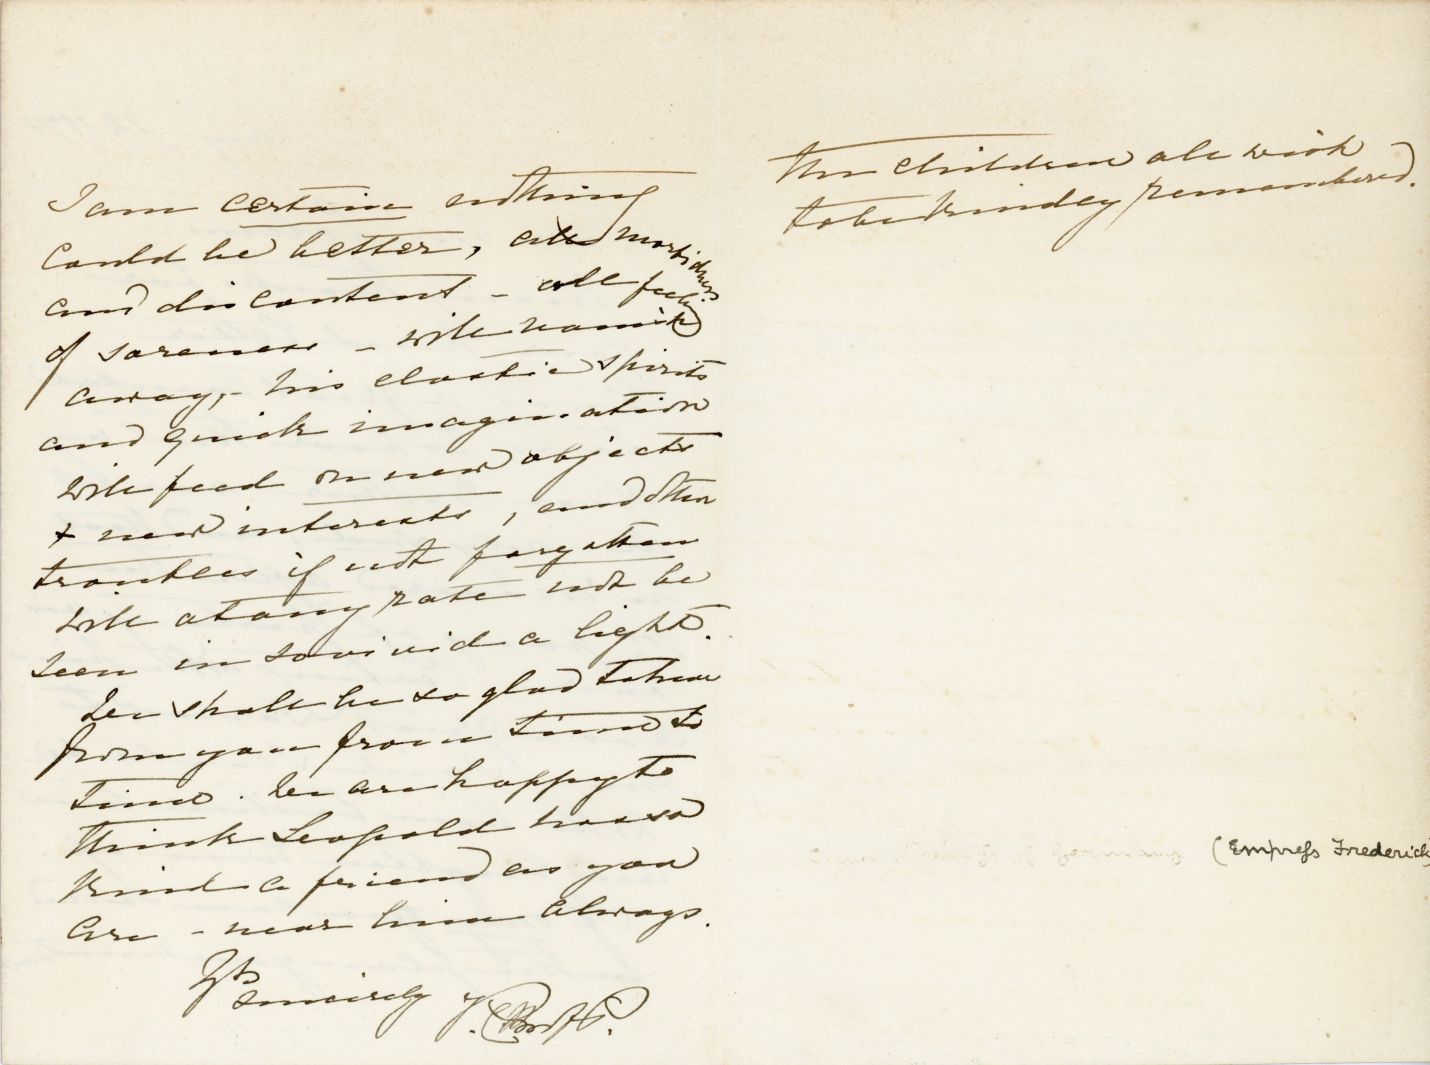 I am certain nothing
could be better, all morbidness
and discontent - all feeling
of soreness - will vanish
away, - his elastic spirits
and quick imagination
will feed on new objects
& new interests, and other
troubles if not forgotten
will at any rate not be
seen in so vivid a light.
We shall be so glad to hear
from you from time to
time. We are happy to
think Leopold has so
kind a friend as you
are - near him always.
Yrs
sincirely V.
The children all wish
to be kindly remembered.
(Empress Frederick)